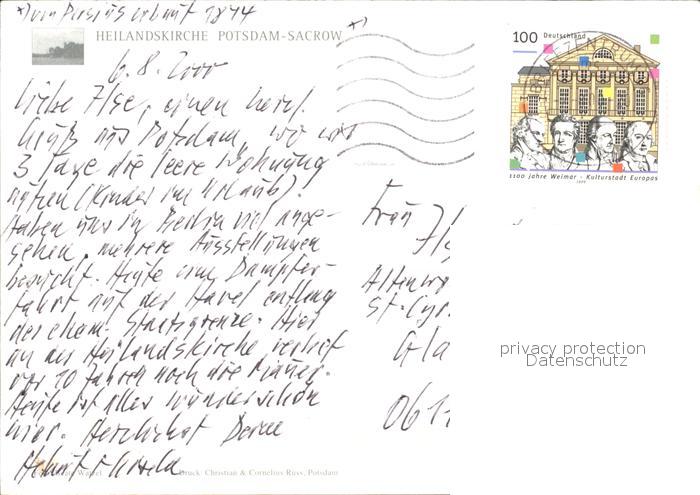 *) von Persius erbaut 1844
*)
HEILANDSKIRCHE POTSDAM-SACROW
6.8.2000
Liebe Ilse, einen herzl.
Gruß aus Potsdam, wo wir
3 Tage die leere Wohnung
hüten (Kinder im Urlaub)!
Haben uns in Berlin viel ange-
sehen, mehrere Ausstellungen
besucht. Heute eine Dampfer-
fahrt auf der Havel entlang
der ehem. Staatsgrenze. Hier
an der Heilandskirche verlief
vor 10 Jahren noch die Mauer.
Heute ist alles wunderschön
hier. Herzlichst Deine
Helmut +
Druck: Christian & Cornelius Rüss, Potsdam
100 Deutschland
1100 Jahre Weimar - Kulturstadt Europas
1999
BRIEFZENTRUM
Frau
Ils
St. Cyr.
Gla
privacy protection
Datenschutz